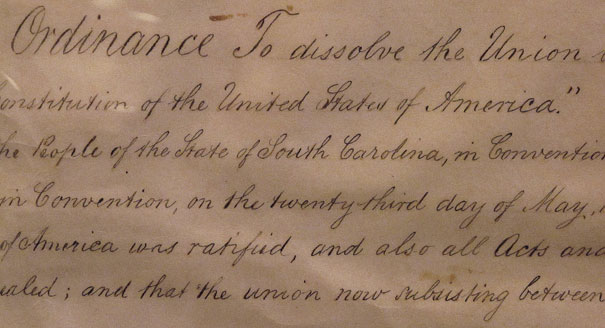 Ordinance To dissolve the Union
onstitution of the United States of America."
he People of the State of South Carolina, in Convention
in Convention, on the twenty-third day of May,
of America was ratified, and also all Acts and
ealed; and that the union now subsisting between